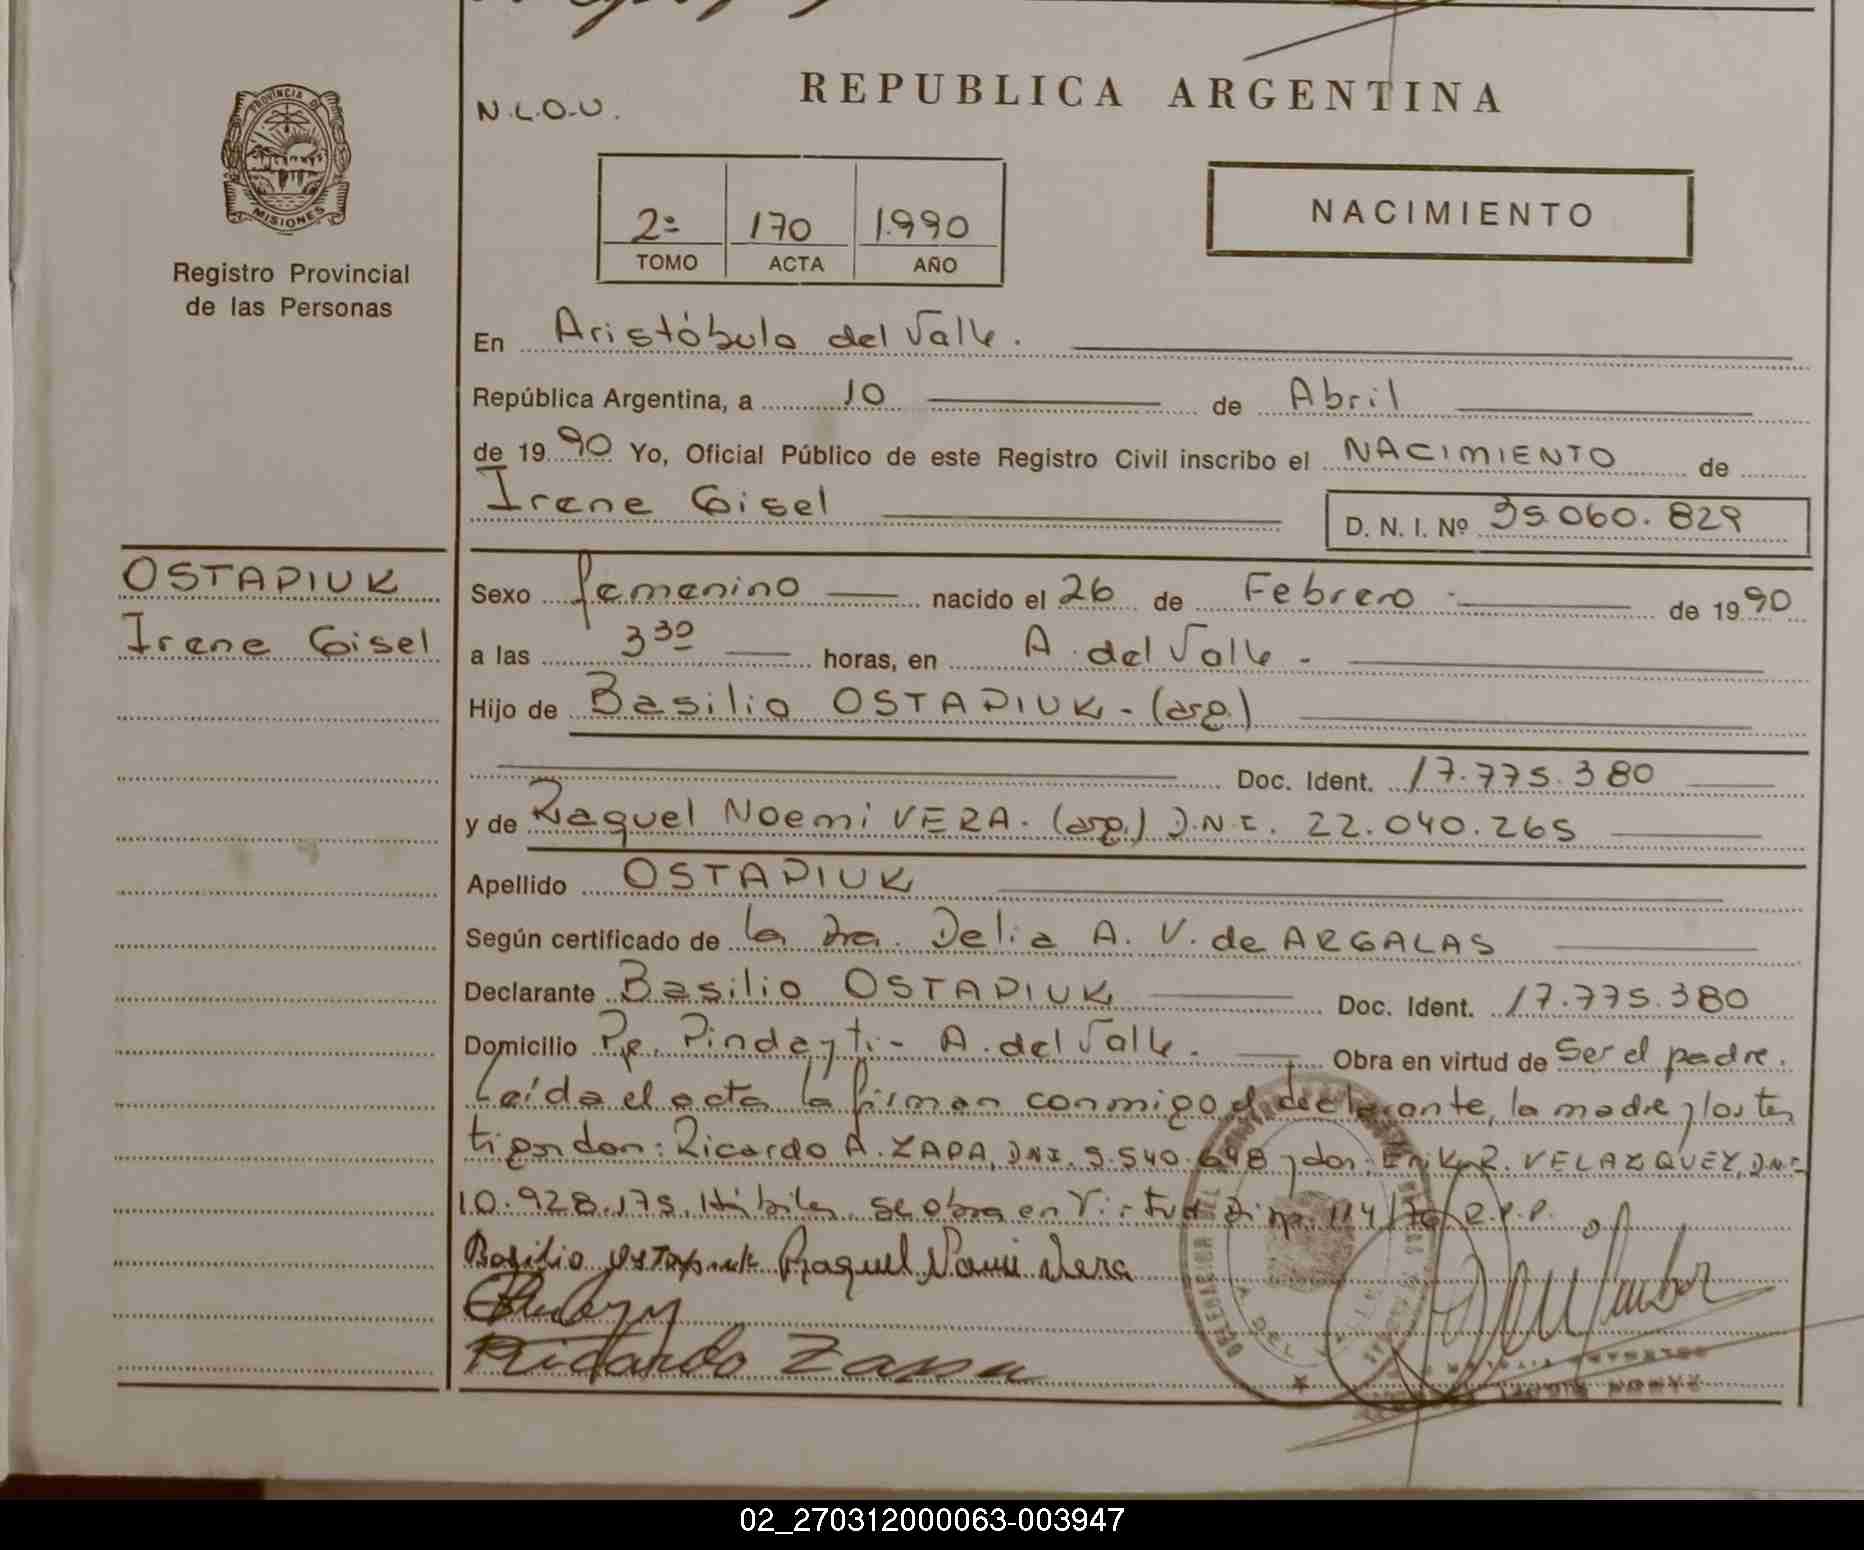 REPUBLICA ARGENTINA
N.L.O.U.
PROVINCIA DE
MISIONES
Registro Provincial
de las Personas
2º 170 1.990
TOMO ACTA AÑO
NACIMIENTO
En Aristóbulo del Valle.
República Argentina, a 10 de Abril
de 1990 Yo, Oficial Público de este Registro Civil inscribo el NACIMIENTO de
Irene Gisel
D. N. I. Nº 35.060.829
OSTAPIUK
Irene Gisel
Sexo femenino nacido el 26 de Febrero de 1990
a las 3 30 horas, en A. del Valle -
Hijo de Basilio OSTAPIUK - (arg.)
Doc. Ident. 17.775.380
y de Raquel Noemi VERA. (arg.) D.N.I. 22.040.265
Apellido OSTAPIUK
Según certificado de la Dra. Delia A. V. de ARGALAS
Declarante Basilio OSTAPIUK Doc. Ident. 17.775.380
Domicilio Pje. Pindayti - A. del Valle. Obra en virtud de Ser el padre.
Leída el acta la firman conmigo el declarante, la madre y los tes
tigos don: Ricardo A. ZAPA, DNI. y don: Erik R. VELAZQUEZ, DNI
10.928.175. Hábiles. se obra en Virtud Disp. 114/76 R.P.P.
Basilio Ostapiuk Raquel Noemi Vera
Ricardo Zapa
02_270312000063-003947